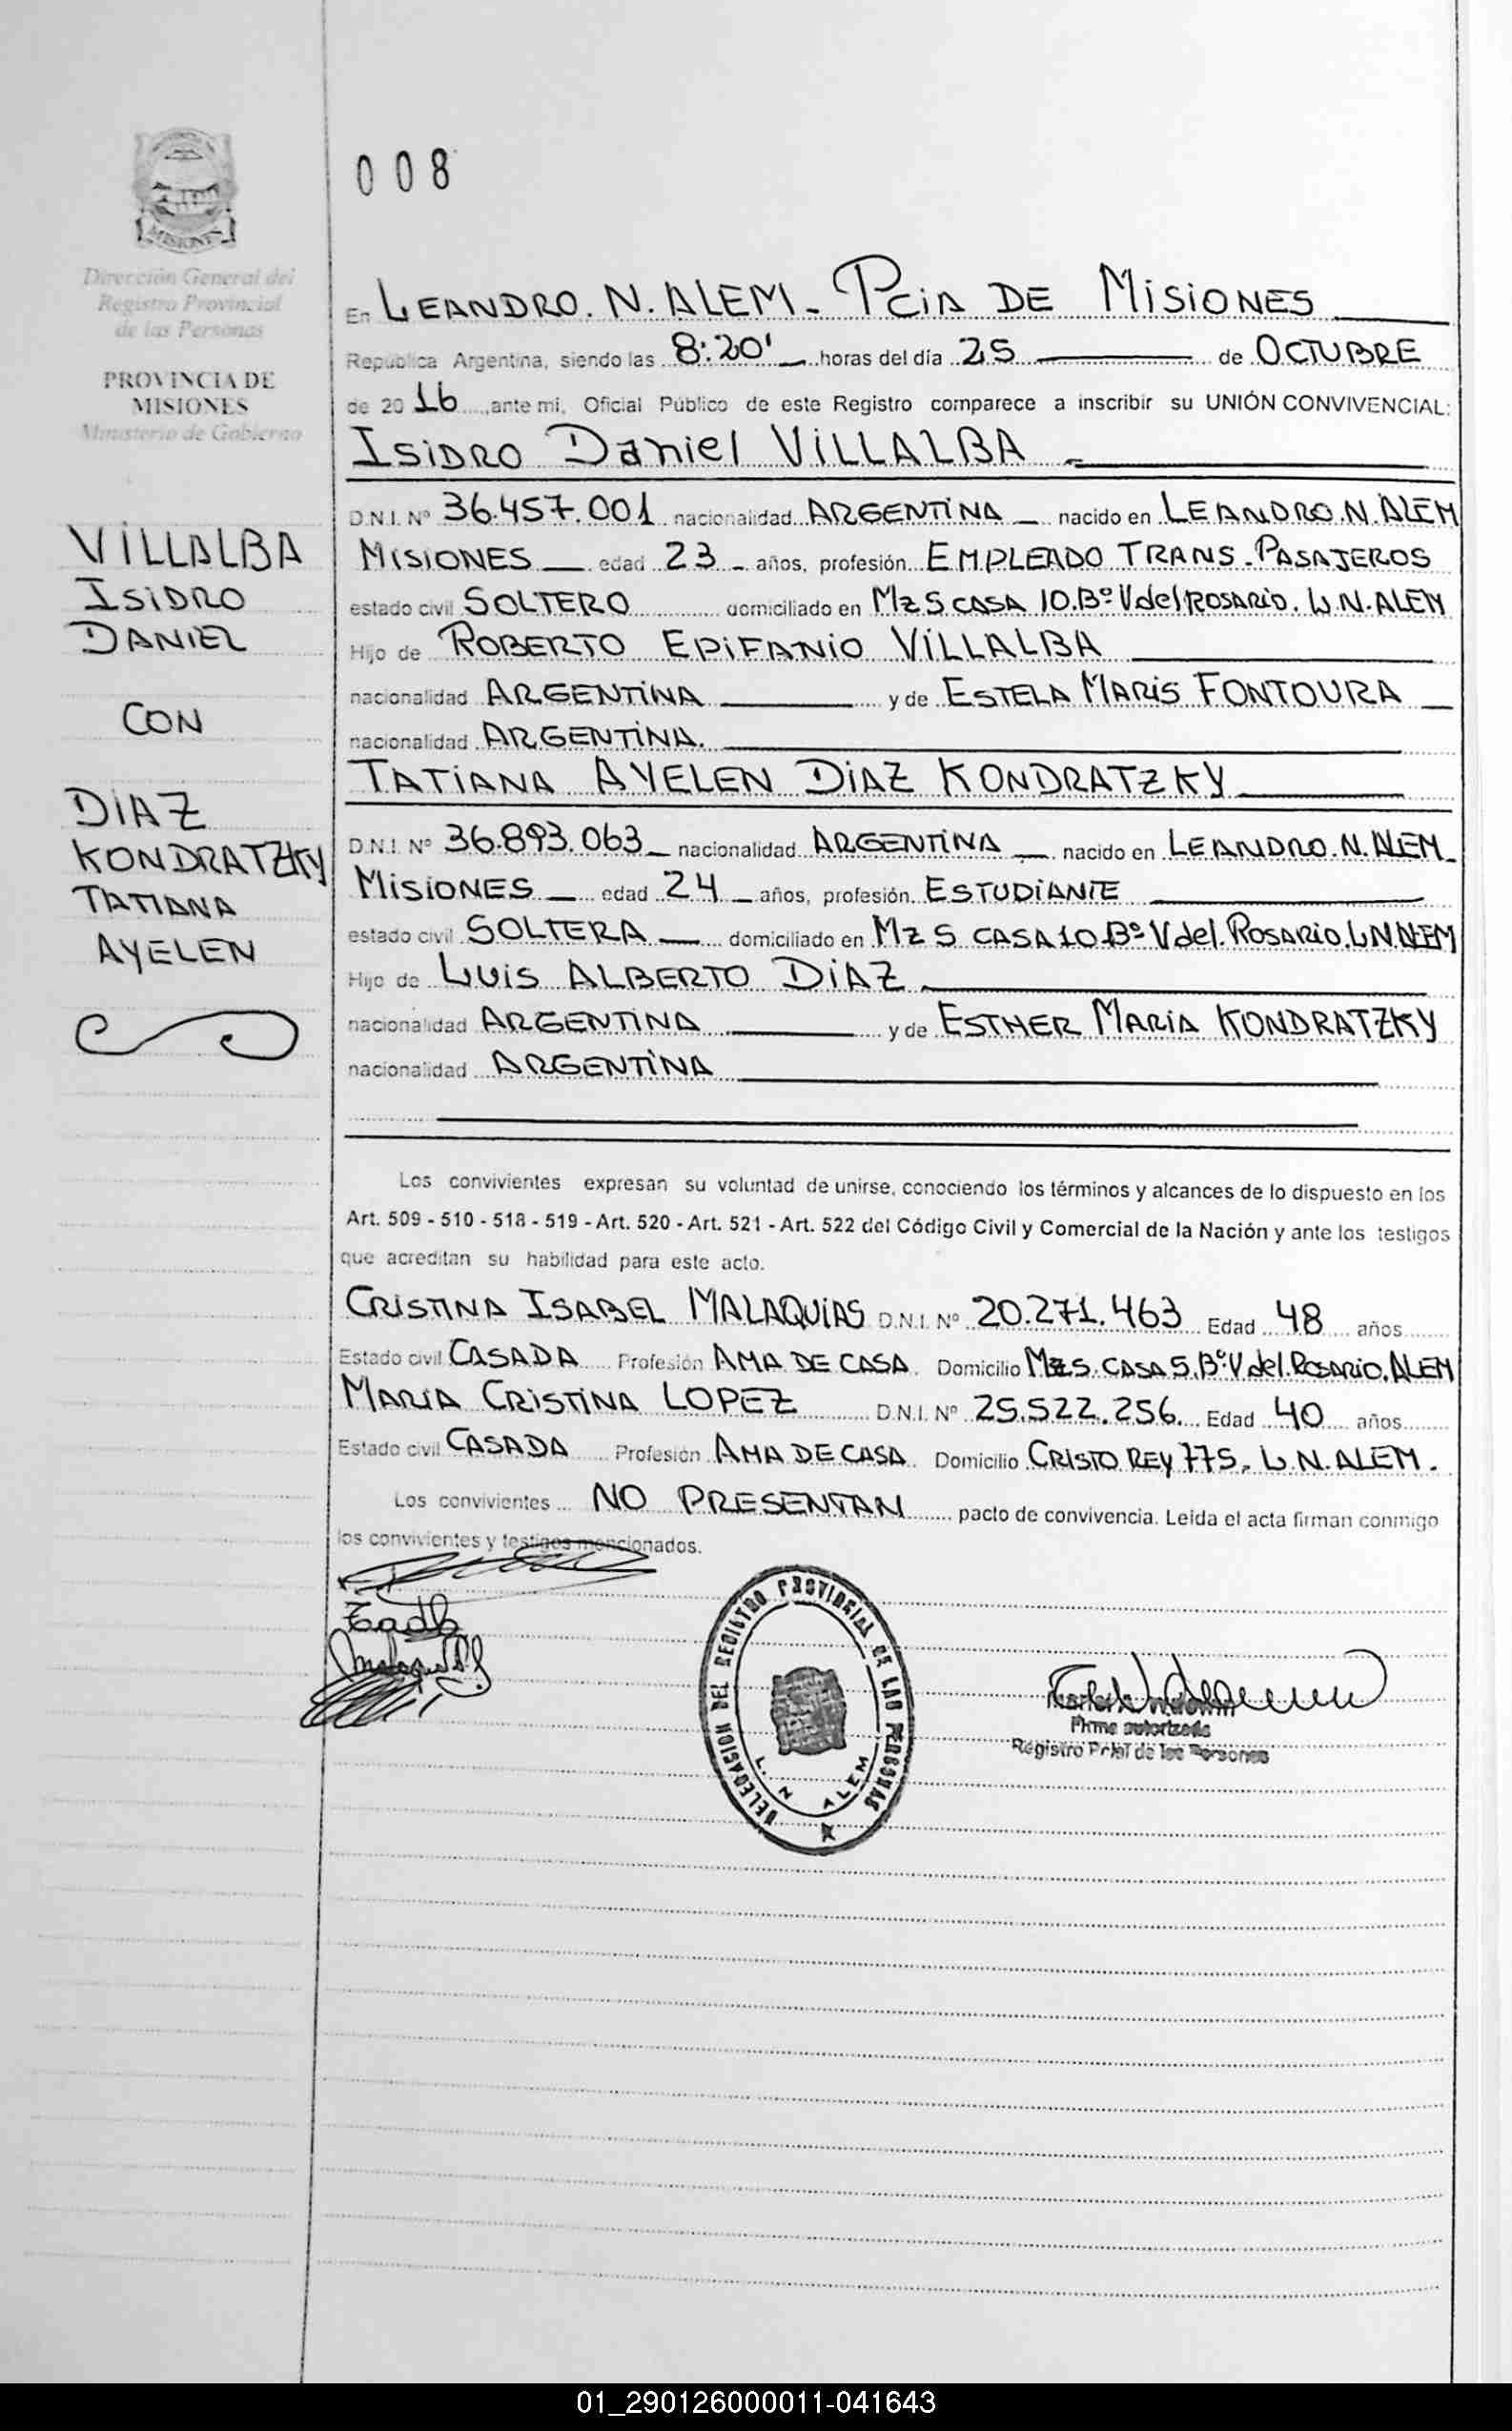 008
Dirección General del
Registro Provincial
de las Personas
PROVINCIA DE
MISIONES
Ministerio de Gobierno
VILLALBA
ISIDRO
DANIEL
CON
DIAZ
KONDRATZKY
TATIANA
AYELEN
En LEANDRO. N. ALEM - Pcia DE MISIONES
República Argentina, siendo las 8:20' horas del día 25 de OCTUBRE
de 2016, ante mi, Oficial Público de este Registro comparece a inscribir su UNIÓN CONVIVENCIAL:
ISIDRO Daniel VILLALBA
D.N.I. Nº 36.457.001 nacionalidad ARGENTINA nacido en LEANDRO.N.ALEM
MISIONES edad 23 años, profesión EMPLEADO TRANS. PASAJEROS
estado civil SOLTERO domiciliado en Mz 5 CASA 10.Bº V del ROSARIO. L.N.ALEM
Hijo de ROBERTO EPIFANIO VILLALBA
nacionalidad ARGENTINA y de ESTELA MARIS FONTOURA
nacionalidad ARGENTINA.
TATIANA AYELEN DIAZ KONDRATZKY
D.N.I. Nº 36.893.063 nacionalidad ARGENTINA nacido en LEANDRO.N.ALEM
MISIONES edad 24 años, profesión ESTUDIANTE
estado civil SOLTERA domiciliado en Mz 5 CASA 10 Bº V del. ROSARIO. L N ALEM
Hijo de LUIS ALBERTO DIAZ
nacionalidad ARGENTINA y de ESTHER MARIA KONDRATZKY
nacionalidad ARGENTINA
Los convivientes expresan su voluntad de unirse, conociendo los términos y alcances de lo dispuesto en los
Art. 509 - 510 - 518 - 519 - Art. 520 - Art. 521 - Art. 522 del Código Civil y Comercial de la Nación y ante los testigos
que acreditan su habilidad para este acto.
CRISTINA ISABEL MALAQUIAS D.N.I. Nº 20.271.463 Edad 48 años
Estado civil CASADA Profesión AMA DE CASA. Domicilio Mz 5. CASA 5. Bº. V del. ROSARIO. ALEM
MARIA CRISTINA LOPEZ D.N.I. Nº 25.522.256. Edad 40 años
Estado civil CASADA Profesión AMA DE CASA. Domicilio CRISTO REY 775. L.N.ALEM.
Los convivientes NO PRESENTAN pacto de convivencia. Leída el acta firman conmigo
los convivientes y testigos mencionados.
DELEGACION DEL REGISTRO PROVINCIAL DE LAS PERSONAS
L. N ALEM
Firma autorizada
Registro Pcial de las Personas
01_290126000011-041643